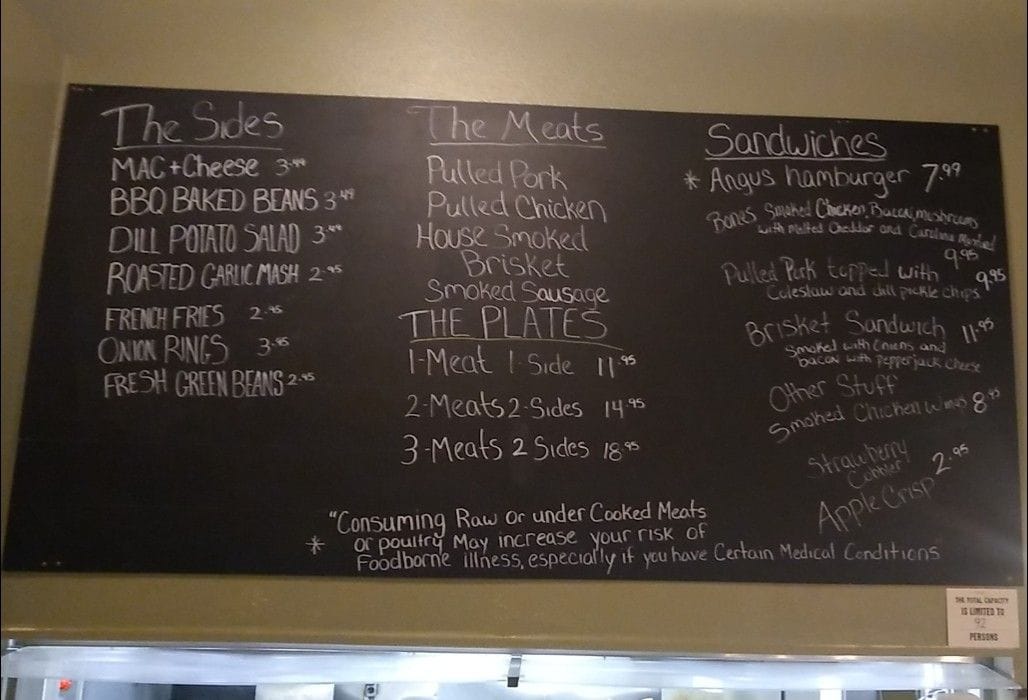 The Sides
MAC+Cheese 3.49
BBQ BAKED BEANS 3.49
DILL POTATO SALAD 3.49
ROASTED GARLIC MASH 2.95
FRENCH FRIES 2.95
ONION RINGS 3.95
FRESH GREEN BEANS 2.95
The Meats
Pulled Pork
Pulled Chicken
House Smoked
Brisket
Smoked Sausage
THE PLATES
1-Meat 1-Side 11.95
2-Meats 2-Sides 14.95
3-Meats 2 Sides 18.95
Sandwiches
* Angus hamburger 7.99
Bones Smoked Chicken, Bacon, mushrooms
with melted Cheddar and Carolina
9.95
Pulled Pork topped with 9.95
Coleslaw and dill pickle chips
Brisket Sandwich 11.95
Smoked with Onions and
bacon with pepperjack cheese
Other Stuff
Smoked Chicken Wings 8.95
Strawberry
Cobbler 2.95
Apple Crisp
"Consuming Raw or under Cooked Meats
* or poultry May increase your risk of
Foodborne illness, especially if you have Certain Medical Conditions"
THE TOTAL CAPACITY
IS LIMITED TO
92
PERSONS